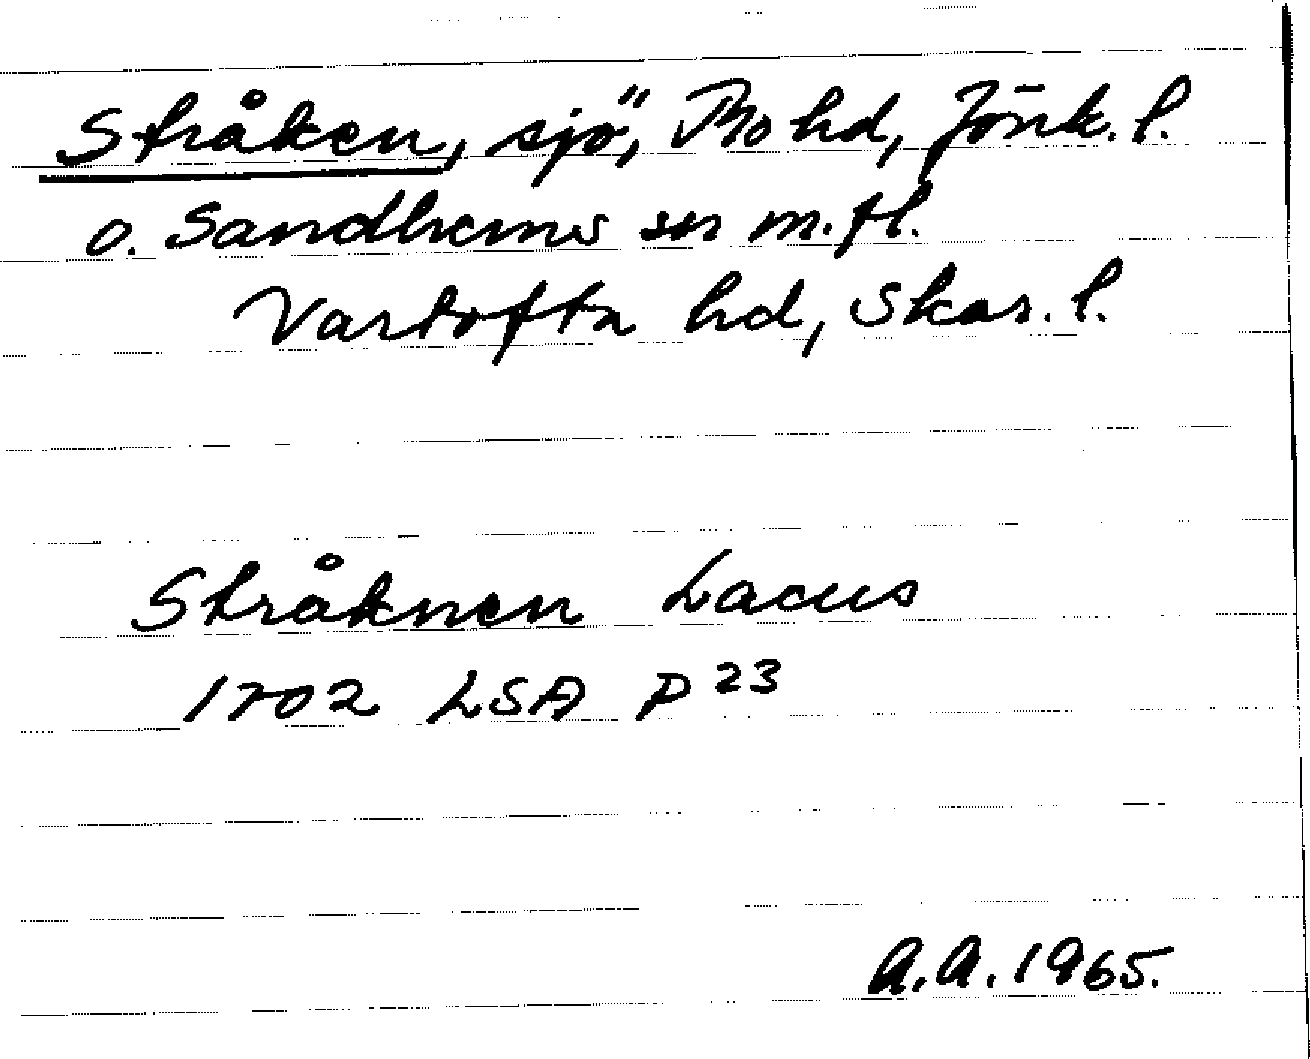 Stråken, sjö, Mo hd, Jönk. l.
o. Sandhems sn m.fl.
Vartofta hd, Skar. l.
Stråknen Lacus
1702 LSA P 23
A.A. 1965.